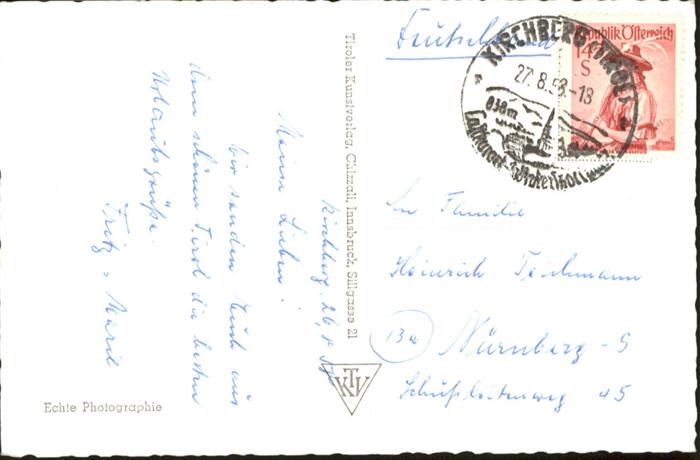 Kirchberg, 26.8.53
Meine Lieben!
Wir senden Euch aus
dem schönen Tirol die besten
Urlaubsgrüße.
Fritz u. Marie
Echte Photographie
Tiroler Kunstverlag, Chizzali, Innsbruck, Sillgasse 21
TKV
Deutschland
KIRCHBERG, TIROL
27.8.53.-18
838m
Luftkurort
Wintersport
Republik Österreich
1.45
S
An Familie
Heinrich Teichmann
13a
Nürnberg-S
45